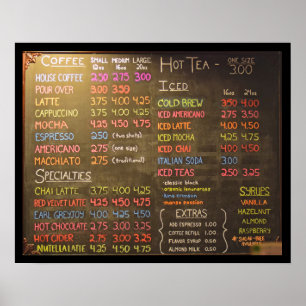 COFFEE SMALL 12oz MEDIUM 16oz LARGE 20oz
HOUSE COFFEE 2.50 2.75 3.00
POUR OVER 3.00 3.50
CAPPUCCINO 3.75 4.00 4.25
LATTE 3.75 4.00 4.25
MOCHA 4.25 4.50 4.75
ESPRESSO 2.50 (two shots)
AMERICANO 2.75 (one size)
MACCHIATO 2.75 (traditional)
SPECIALTIES
CHAI LATTE 3.75 4.00 4.25
RED VELVET LATTE 3.75 4.00 4.25
EARL GREYJOY 4.00 4.50 5.00
HOT CHOCOLATE 2.75 3.00 3.25
HOT CIDER 2.75 3.00 3.25
NUTELLA LATTE 4.25 4.50 4.75
HOT TEA - ONE SIZE 3.00
ICED
16oz 24oz
COLD BREW 3.50 4.50
ICED AMERICANO 2.75 3.50
ICED LATTE 4.00 4.50
ICED MOCHA 4.25 4.75
ICED CHAI 4.00 4.50
ITALIAN SODA 3.00
ICED TEAS 2.50 3.25
-classic black
-organic lemongrass
-mango passion
EXTRAS
ADD ESPRESSO 1.00
COFFEE REFILL 1.00
FLAVOR SYRUP .50
ALMOND/SOY .50
SYRUPS
VANILLA
HAZELNUT
ALMOND
RASPBERRY
SUGAR-FREE